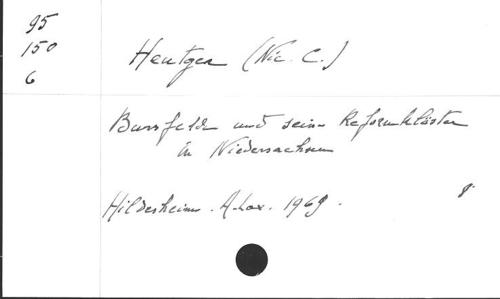 95
150
6
Heutger (Nic. C.)
Bursfelde und seine Reformklöster
in Niedersachsen
Hildesheim. A. Lax. 1969.
8°